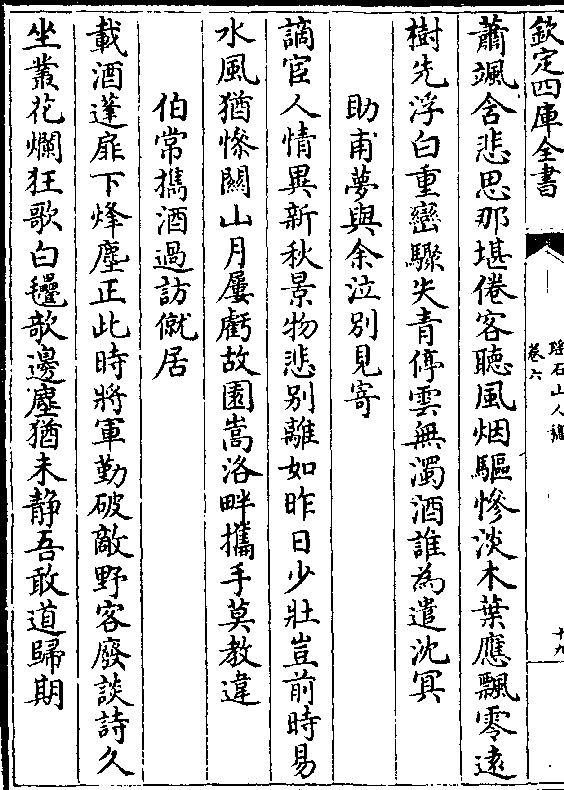 欽定四庫全書
瑶石山人稿
卷六
十九
蕭颯含悲思那堪倦客聽風烟驅慘淡木葉應飄零遠
樹先浮白重巒驟失青停雲無濁酒誰為遣沈冥
助甫夢與余泣别見寄
謫宦人情異新秋景物悲别離如昨日少壯豈前時易
水風猶慘關山月屢虧故園嵩洛畔攜手莫教違
伯常擕酒過訪僦居
載酒蓬扉下烽塵正此時將軍勤破敵野客廢談詩久
坐叢花爛狂歌白氎欹邊塵猶未静吾敢道歸期